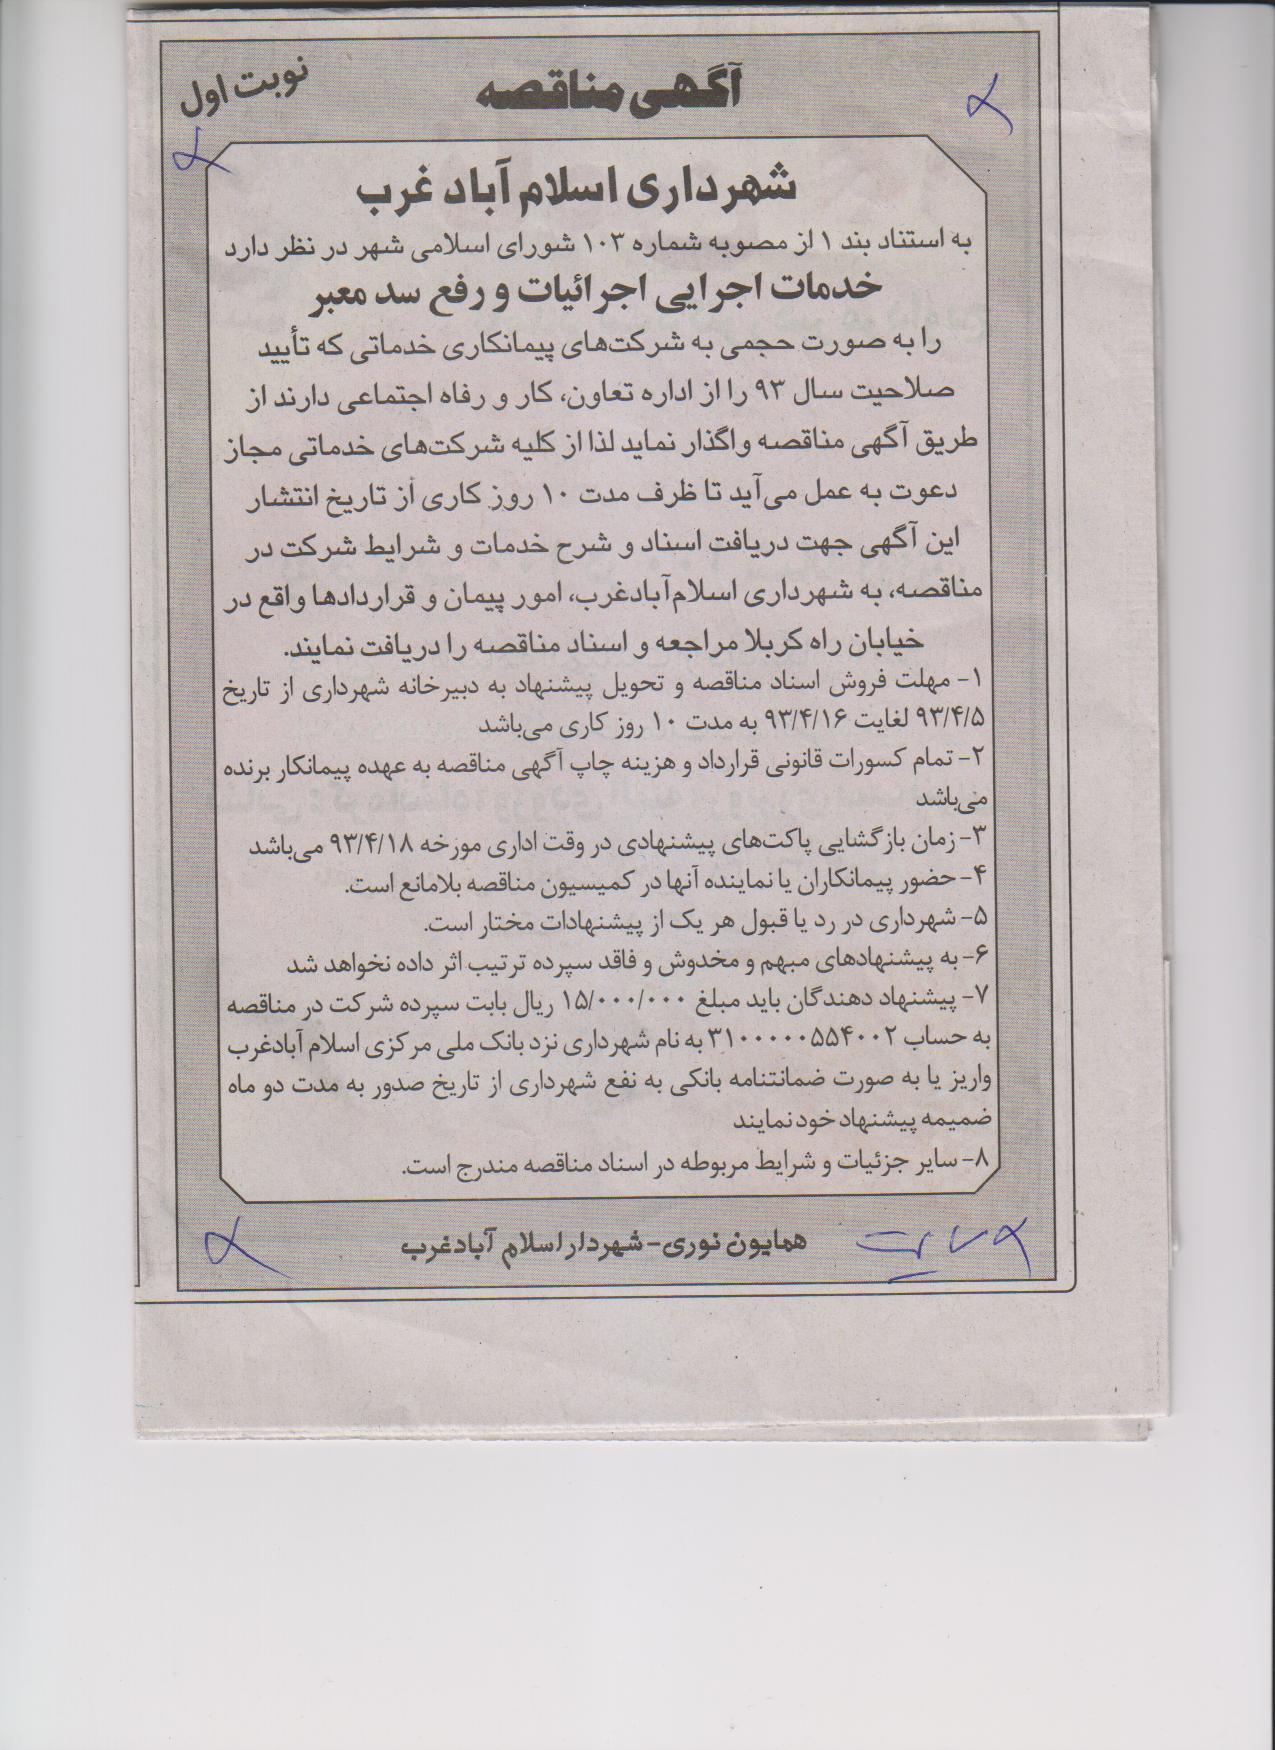 آگهی مناقصه
نوبت اول
شهرداری اسلام آباد غرب
به استناد بند ۱ از مصوبه شماره ۱۰۳ شورای اسلامی شهر در نظر دارد
خدمات اجرایی اجرائیات و رفع سد معبر
را به صورت حجمی به شرکت‌های پیمانکاری خدماتی که تأیید
صلاحیت سال ۹۳ را از اداره تعاون، کار و رفاه اجتماعی دارند از
طریق آگهی مناقصه واگذار نماید لذا از کلیه شرکت‌های خدماتی مجاز
دعوت به عمل می‌آید تا ظرف مدت ۱۰ روز کاری از تاریخ انتشار
این آگهی جهت دریافت اسناد و شرح خدمات و شرایط شرکت در
مناقصه، به شهرداری اسلام‌آبادغرب، امور پیمان و قراردادها واقع در
خیابان راه کربلا مراجعه و اسناد مناقصه را دریافت نمایند.
۱- مهلت فروش اسناد مناقصه و تحویل پیشنهاد به دبیرخانه شهرداری از تاریخ
۹۳/۴/۵ لغایت ۹۳/۴/۱۶ به مدت ۱۰ روز کاری می‌باشد
۲- تمام کسورات قانونی قرارداد و هزینه چاپ آگهی مناقصه به عهده پیمانکار برنده
می‌باشد
۳- زمان بازگشایی پاکت‌های پیشنهادی در وقت اداری مورخه ۹۳/۴/۱۸ می‌باشد
۴- حضور پیمانکاران یا نماینده آنها در کمیسیون مناقصه بلامانع است.
۵- شهرداری در رد یا قبول هر یک از پیشنهادات مختار است.
۶- به پیشنهادهای مبهم و مخدوش و فاقد سپرده ترتیب اثر داده نخواهد شد
۷- پیشنهاد دهندگان باید مبلغ ۱۵/۰۰۰/۰۰۰ ریال بابت سپرده شرکت در مناقصه
به حساب ۳۱۰۰۰۰۰۵۵۴۰۰۲ به نام شهرداری نزد بانک ملی مرکزی اسلام آبادغرب
واریز یا به صورت ضمانتنامه بانکی به نفع شهرداری از تاریخ صدور به مدت دو ماه
ضمیمه پیشنهاد خود نمایند
۸- سایر جزئیات و شرایط مربوطه در اسناد مناقصه مندرج است.
همایون نوری- شهردار اسلام آبادغرب